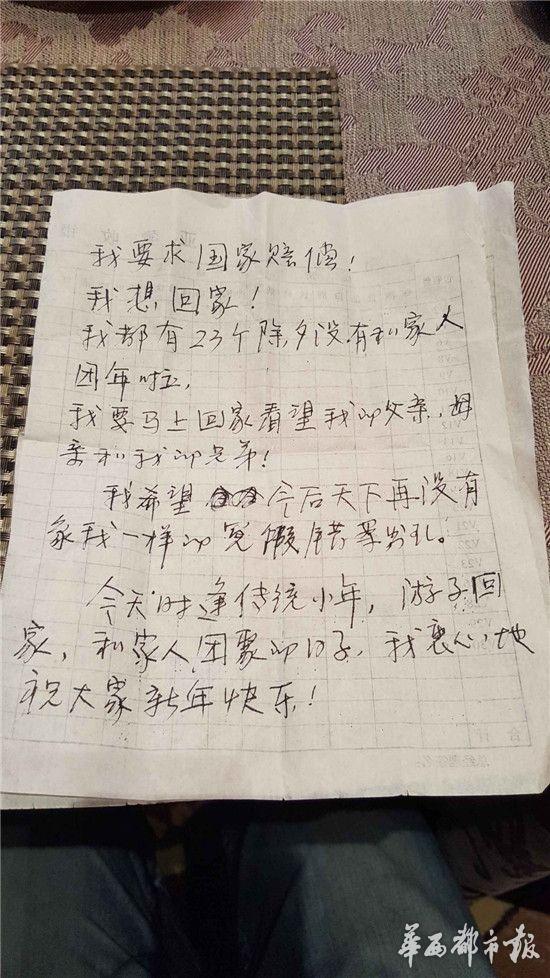 我要求国家赔偿！
我想回家！
我都有23个除夕没有和家人
团年啦，
我要马上回家看望我的父亲，母
亲和我的兄弟！
我希望今后天下再没有
象我一样的冤假错案出现。
今天时逢传统小年，游子回
家，和家人团聚的日子，我衷心地
祝大家新年快乐！
华西都市报